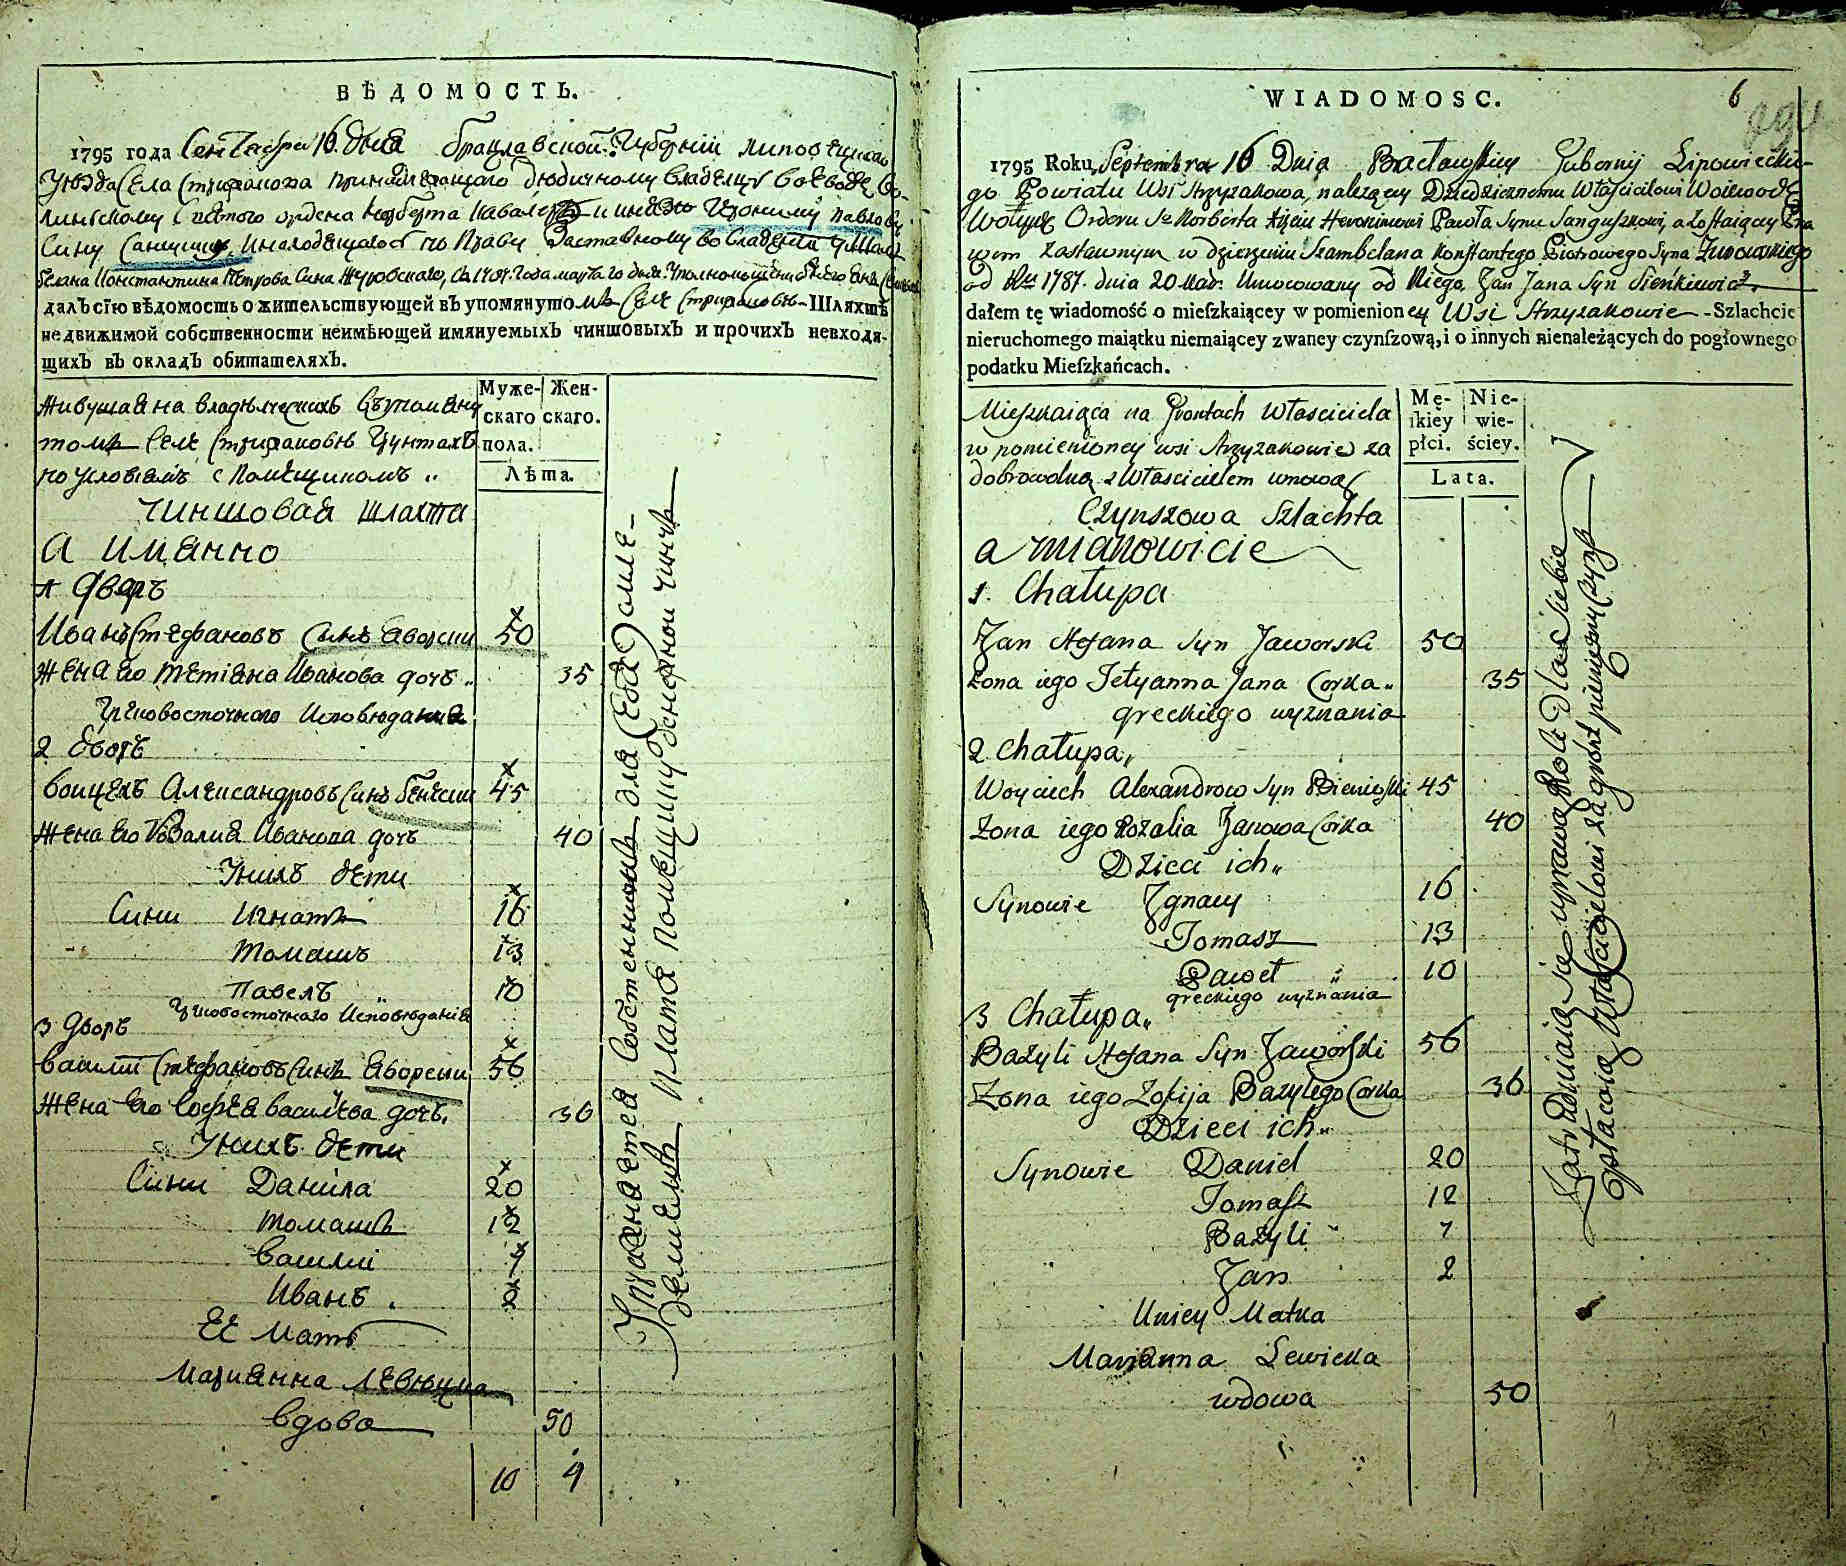 ВѢДОМОСТЬ.
1795 года Сентября 16 дня Брацлавской Губернiи Липовецкаго
Уезда Села Стрижакова принадлежащаго Дедичному Владелцу Воеводе Во-
линскому Святого ордена Норберта Кавалеру и Князю Иерониму Павлову
Сину Сангушку, инаходящагося по Праву Заставному во владении
Константина Петрова Сина Журовскаго, Са 1787 Года марта 20 дня Уполномоченный
далъ сїю вѣдомость о жительствующей въ упомянутомъ Селе Стрижаковѣ - Шляхтѣ
недвижимой собственности неимѣющей имянуемыхъ чиншовыхъ и прочихъ невходя-
щихъ въ окладъ обитателяхъ.
Живущая на владѣлческихъ въ упомяну
томъ Селе Стрижаковѣ Грунтахъ
по условiямъ с Помещикомъ „
Муже-
скаго
пола.
Жен-
скаго.
Лѣта.
Чиншовая шляхта
А имянно
1 дворъ
Иванъ Стефановъ Синъ Яворски 50
Жена его Тетiяна Иванова дочь „ 35
Грековосточного Исповедания
2 дворъ
Войцехъ Александровъ Синъ Бенески 45
Жена его Розалия Иванова дочь 40
Унихъ дети
Сини Игнатъ 16
Томашъ 13
Павелъ 10
Грековосточнаго Исповедания
3 дворъ
Василий Стефановъ Синъ Яворски 56
Жена его Софея Василiева дочь. 36
Унихъ дети
Сини Данила 20
Томашъ 12
Василий 7
Иванъ . 2
Ее Мать
Марианна Левецка
вдова 50
10 4
Упражняется Собственнимъ для Себя Земле-
делиемъ Платя Помещику денежной чиншъ
WIADOMOSC.
6
1795 Roku Septembra 16 Dnia Bracławskiey Gubernij Lipowieckie-
go Powiatu Wsi Strzyzakowa, nalezącey Dziedzicznemu Właścicielowi Woiewodzie
Wołyńs. Orderu So Norberta Xzęciu Heronimowi Pawła Synu Sanguszkowi, a zostaiącey Pra
wem zastawnym w dzierzeniu Szambelana Konstantego Piotrowego Syna Zurowskiego
od Rku 1787. dnia 20 Mar. Umocowany od Niego, Jan Jana Syn Sieńkiewicz,
dałem tę wiadomość o mieſzkaiącey w pomienioney Wsi Strzyzakowie - Szlachcie
nieruchomego maiątku niemaiącey zwaney czynſzową, i o innych nienależących do pogłownego
podatku Mieſzkańcach.
Mieszkaiąca na Gruntach Własciciela
w pomienioney wsi Strzyzakowie za
dobrowolną z Własciciełem umową
Mę-
ſkiey
płci.
Nie-
wie-
ściey.
Lata.
Czynszowa Szlachta
a mianowicie
1. Chałupa
Jan Stefana Syn Jaworski 50
Zona iego Tetyanna Jana Corka „ 35
greckiego wyznania
2 Chałupa „
Woyciech Alexandrow Syn Bienieſki 45
Zona iego Rozalia Janowa Corka 40
Dzieci ich „
Synowie Jgnacy 16
Tomasz 13
Paweł „ 10
greckiego wyznania
3 Chałupa „
Bazyli Stefana Syn Jaworſki 56
Zona iego Zofija Bazylego Corka 36
Dzieci ich „
Synowie Daniel 20
Tomaſz 12
Bazyli 7
Jan 2
Uniey Matka
Marianna Lewicka
wdowa 50
Zatrudniaią się uprawą Roli Dla Siebie
Opłacaią Właścicielowi za grunt pieniężny Czynſz